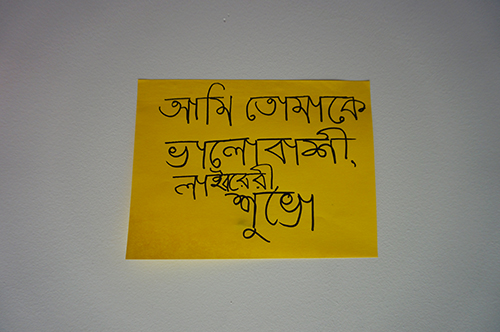 আমি তোমাকে
ভালোবাশী,
লাইব্রেরী,
শুভো